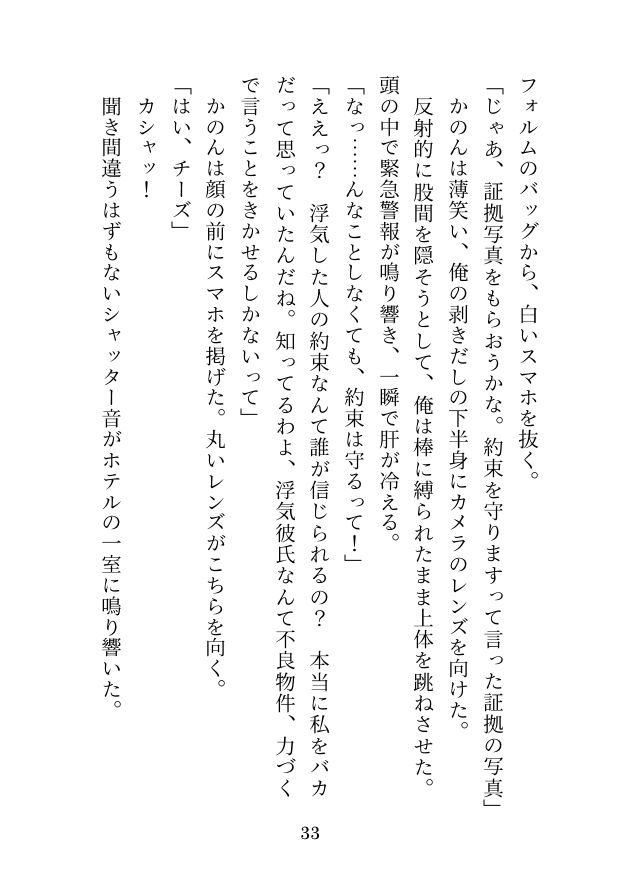 フォルムのバッグから、白いスマホを抜く。
「じゃあ、証拠写真をもらおうかな。約束を守りますって言った証拠の写真」
　かのんは薄笑い、俺の剥きだしの下半身にカメラのレンズを向けた。
　反射的に股間を隠そうとして、俺は棒に縛られたまま上体を跳ねさせた。
頭の中で緊急警報が鳴り響き、一瞬で肝が冷える。
「なっ……んなことしなくても、約束は守るって！」
「ええっ？　浮気した人の約束なんて誰が信じられるの？　本当に私をバカ
だって思っていたんだね。知ってるわよ、浮気彼氏なんて不良物件、力づく
で言うことをきかせるしかないって」
　かのんは顔の前にスマホを掲げた。丸いレンズがこちらを向く。
「はい、チーズ」
　カシャッ！
　聞き間違うはずもないシャッター音がホテルの一室に鳴り響いた。
33